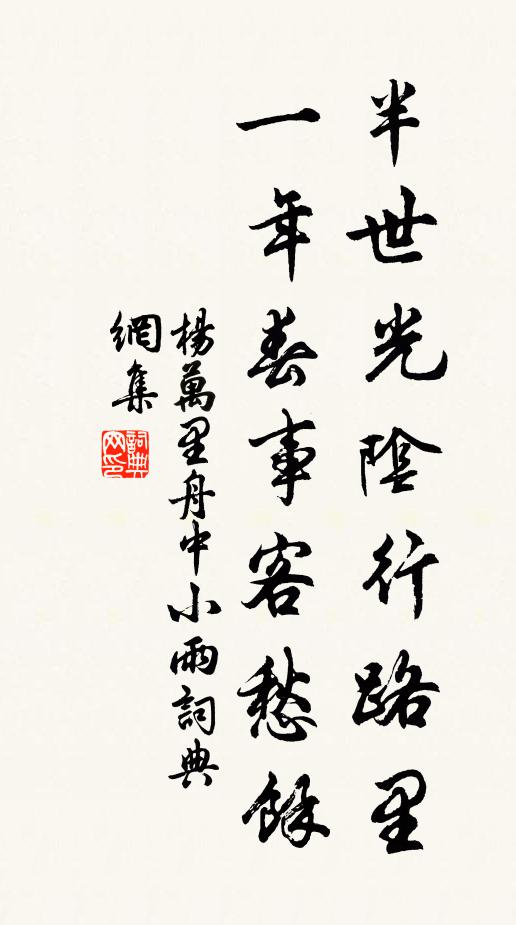 半世光陰行路里
一年春事客愁餘
楊萬里舟中小雨詞典
網集
詞典網印